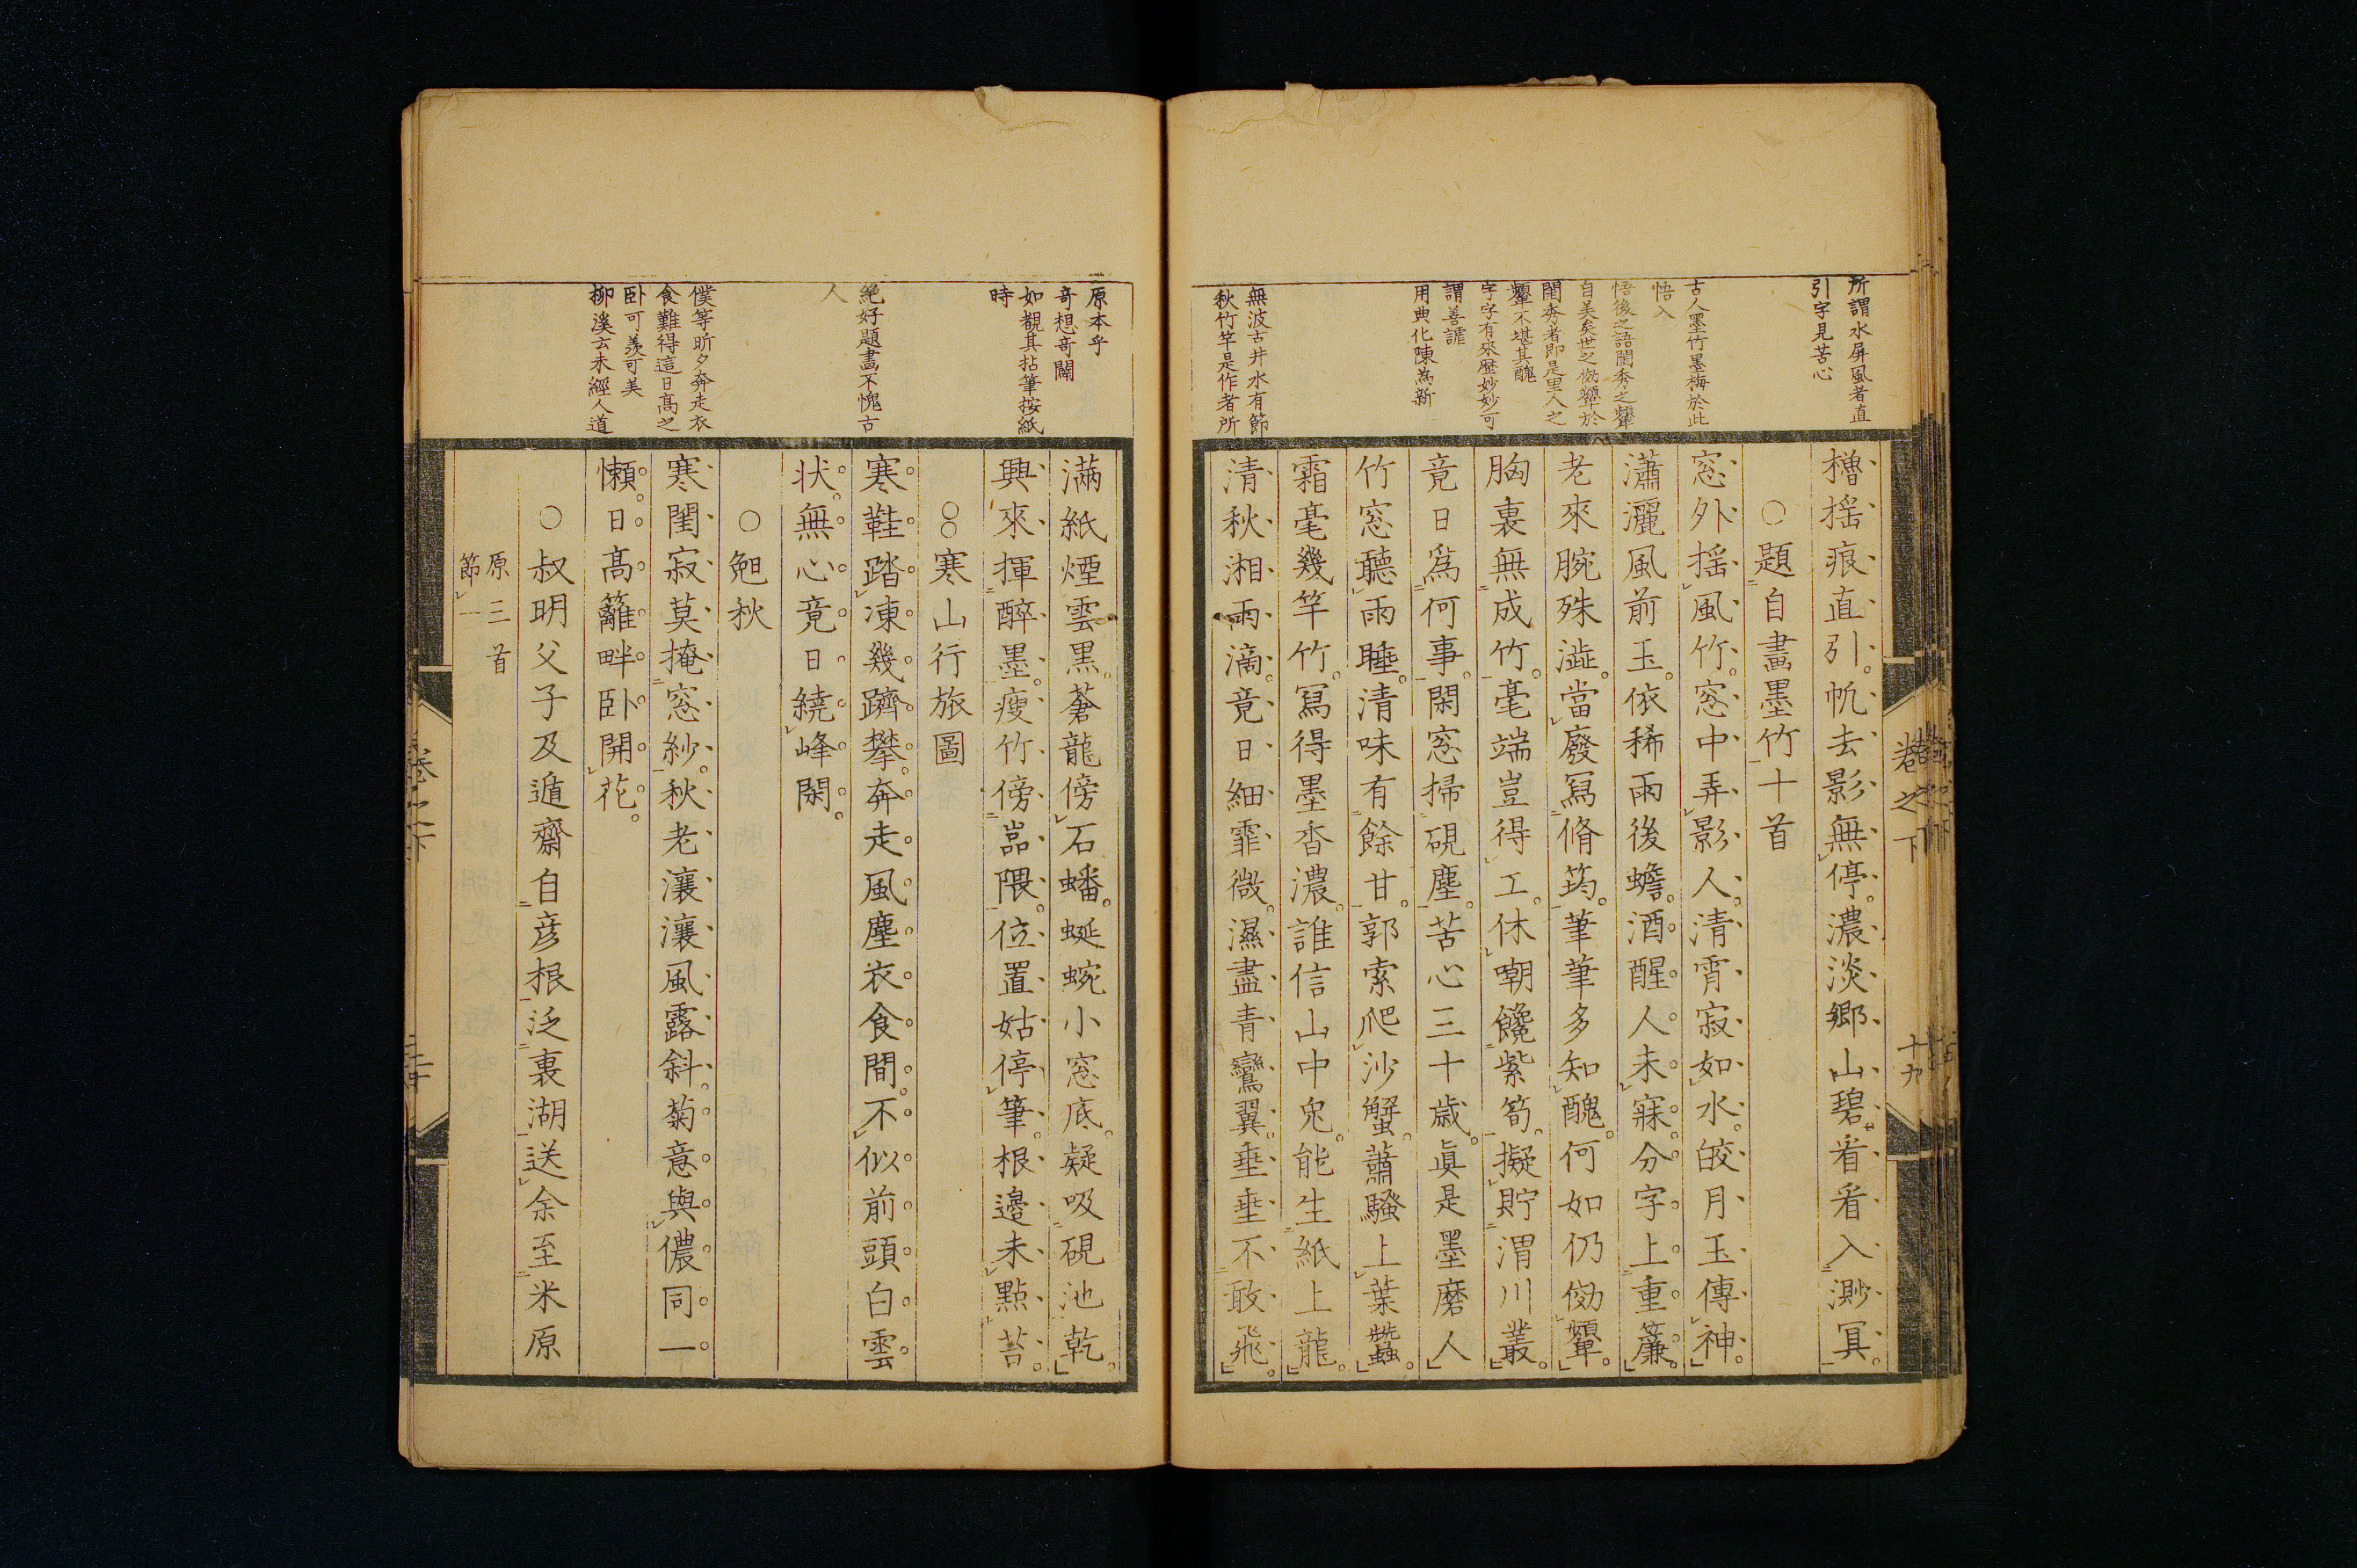 所謂水屏風者直
引字見苦心
古人墨竹墨梅於此
悟入
悟後之語閨秀之顰
自美矣世之傚顰於
閨秀者即是里人之
顰不堪其醜
字字有來歷妙妙可
謂善謔
用典化陳為新
無波古井水有節
秋竹竿是作者所
櫓揺痕直引帆去影無停濃淡郷山碧看看入渺冥
○題自畫墨竹十首
窓外揺風竹窓中弄影人清宵寂如水皎月玉傳神
瀟灑風前玉依稀雨後蟾酒醒人未寐分字上重簾
老來腕殊澁當廢冩脩筠筆筆多知醜何如仍傚顰
胸裏無成竹毫端豈得工休嘲饞紫筍擬貯渭川叢
竟日為何事閑窓掃硯塵苦心三十歳眞是墨磨人
竹窓聽雨睡清味有餘甘郭索爬沙蟹蕭騷上葉蠶
霜毫幾竿竹冩得墨香濃誰信山中兒能生紙上龍
清秋湘雨滴竟日細霏微濕盡青鸞翼垂垂不敢飛
卷之下
十九
原本乎
奇想奇闢
如觀其拈筆按紙
時
絶好題畫不愧古
人
僕等昕夕奔走衣
食難得這日高之
卧可羨可美
柳溪云未經人道
滿紙煙雲黒蒼龍傍石蟠蜒蜿小窓底疑吸硯池乾
興來揮醉墨瘦竹傍嵓隈位置姑停筆根邊未點苔
○○寒山行旅圖
寒鞋踏凍幾躋攀奔走風塵衣食間不似前頭白雲
状無心竟日繞峰閑
○麭秋
寒閨寂莫掩窓紗秋老瀼瀼風露斜菊意與儂同一
懶日高籬畔卧開花
○叔明父子及遁齋自彦根泛裏湖送余至米原
原三首
節一
卷之下